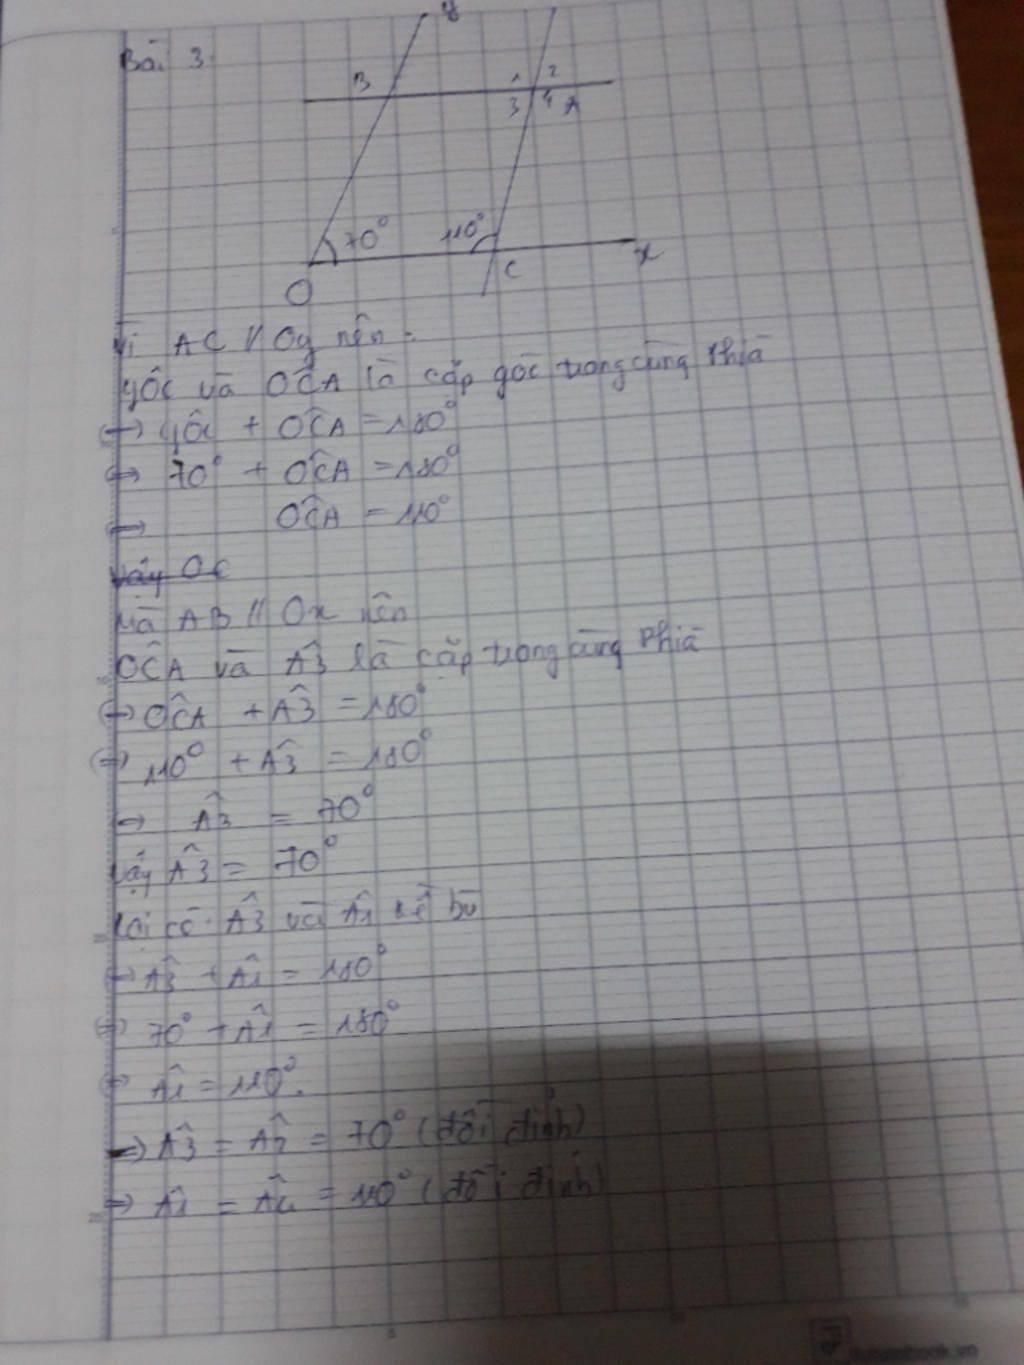 Bài 3.
y
B 1 2
3 4 A
70° 110°
O C x
Vì AC // Oy nên:
yÔC và OĈA là cặp góc trong cùng phía
<=> yÔC + OĈA = 180°
<=> 70° + OĈA = 180°
<=> OĈA = 110°
Mà AB // Ox nên
OĈA và Â3 là cặp trong cùng phía
<=> OĈA + Â3 = 180°
<=> 110° + Â3 = 180°
=> Â3 = 70°
Vậy Â3 = 70°
Lại có: Â3 và Â1 kề bù
=> Â3 + Â1 = 180°
<=> 70° + Â1 = 180°
<=> Â1 = 110°.
=> Â3 = Â2 = 70° (đối đỉnh)
=> Â1 = Â4 = 110° (đối đỉnh)